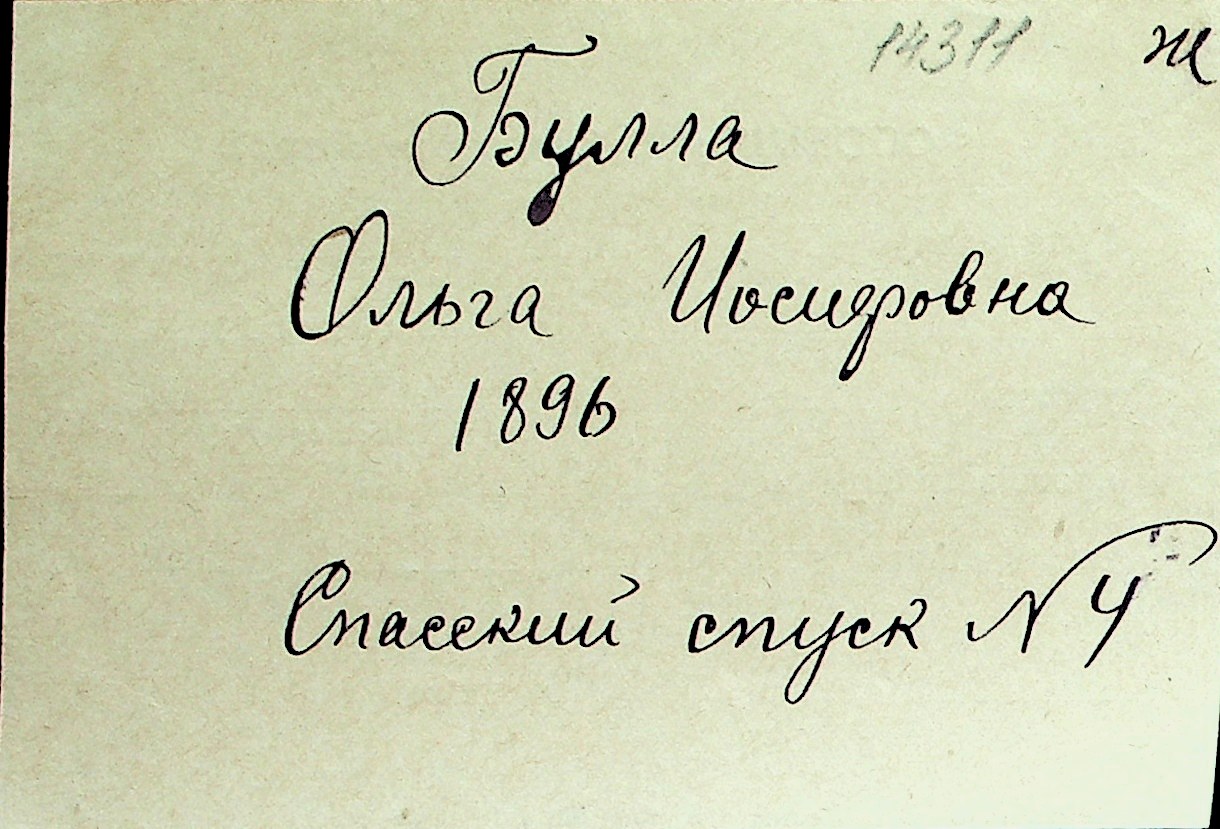 14311 ж
Булла
Ольга Иосифовна
1896
Спасский спуск N 4